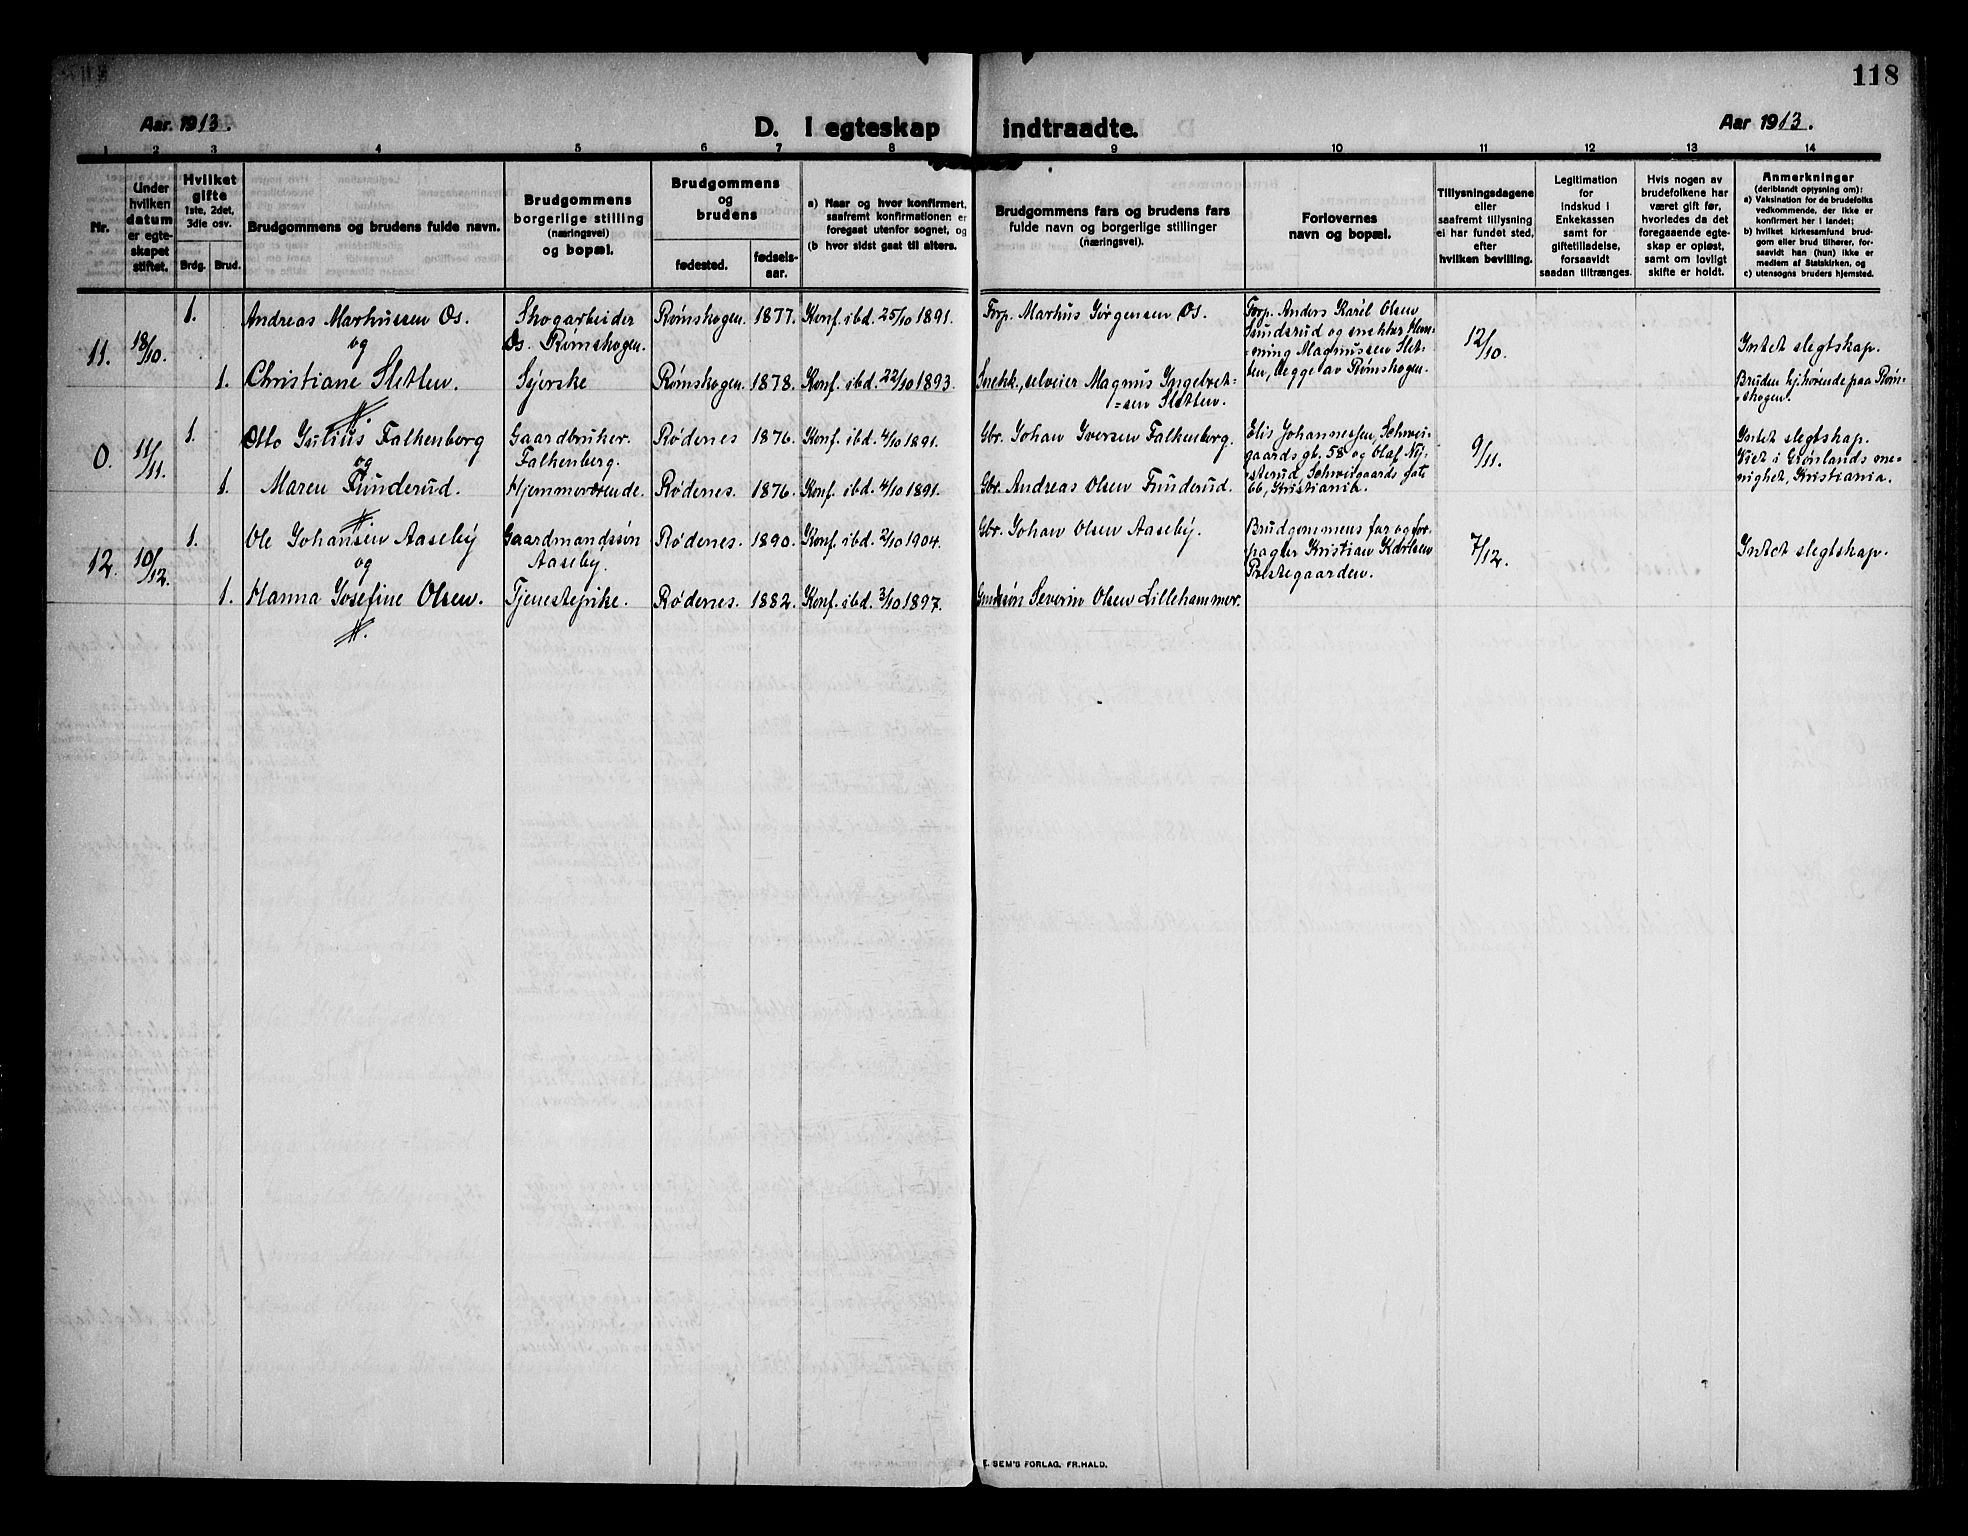 118
Aar. 1913.
D. I egteskap indtraadte.
Aar 1913.
1 2 3 4 5 6 7 8 9 10 11 12 13 14
Nr.
Under hvilken datum er egteskapet stiftet.
Hvilket gifte 1ste, 2det, 3die osv.
Brdg. Brud.
Brudgommens og brudens fulde navn.
Brudgommens borgerlige stilling (næringsvei) og bopæl.
Brudgommens og brudens
fødested. fødselsaar.
a) Naar og hvor konfirmert, saafremt konfirmationen er foregaat utenfor sognet, og
(b hvor sidst gaat til alters.
Brudgommens fars og brudens fars fulde navn og borgerlige stillinger (næringsvei).
Forlovernes navn og bopæl.
Tillysningsdagene eller saafremt tillysning ei har fundet sted, efter hvilken bevilling.
Legitimation for indskud i Enkekassen samt for giftetilladelse, forsaavidt saadan tiltrænges.
Hvis nogen av brudefolkene har været gift før, hvorledes da det foregaaende egteskap er opløst, samt om lovligt skifte er holdt.
Anmerkninger
(deriblandt oplysning om):
a) Vaksination for de brudefolks vedkommende, der ikke er konfirmert her i landet;
b) hvilket kirkesamfund brudgom eller brud tilhører, forsaavidt han (hun) ikke er medlem af Statskirken, og
c) utensogns bruders hjemsted.
11. 18/10. 1. Andreas Markussen Os. Skogarbeider Os. Rømskogen. Rømskogen. 1877. Konf. ibd. 25/10 1891. Forp. Markus Jørgensen Os. Forp. Anders Karil Olsen
Sundsrud og snekker Hen-
=ning Magnussen Slet-
ten, begge av Rømskogen. 12/10. Intet slegtskap.
og
1. Christiane Sletten. Syerske Rømskogen. 1878. Konf. ibd. 22/10 1893. Snekk., selveier Magnus Ingebret=
=sen Sletten. Bruden hjhørende paa Røm-
skogen.
0. 11/11. 1. Otto Julius Falkenborg Gaardbruker. Falkenberg. Rødenes 1876. Konf. ibd. 4/10 1891. Gbr. Johan Iversen Falkenborg. Elis Johannessen, Schwei-
gaards gt. 58 og Olaf Ny-
sterud, Schweigaards gate
66, Kristiania. 9/11. Intet slegtskap.
Viet i Grønlands me-
nighet, Kristiania.
og
1. Maren Funderud. Hjemmeværende. Rødenes. 1876. Konf. ibd. 4/10 1891. Gbr. Andreas Olsen Funderud.
12. 10/12. 1. Ole Johansen Aaseby Gaardmandssøn Aaseby. Rødenes. 1890. Konf. ibd. 2/10 1904. Gbr. Johan Olsen Aaseby. Brudgommens far og for-
pagter Kristian Karlsen
Prestegaarden. 7/12. Intet slegtskap.
og
1. Hanna Josefine Olsen. Tjenestepike. Rødenes. 1882. Konf. ibd. 3/10 1897. Severin Olsen Lillehammer.
E. SEM'S FORLAG. FR.HALD.